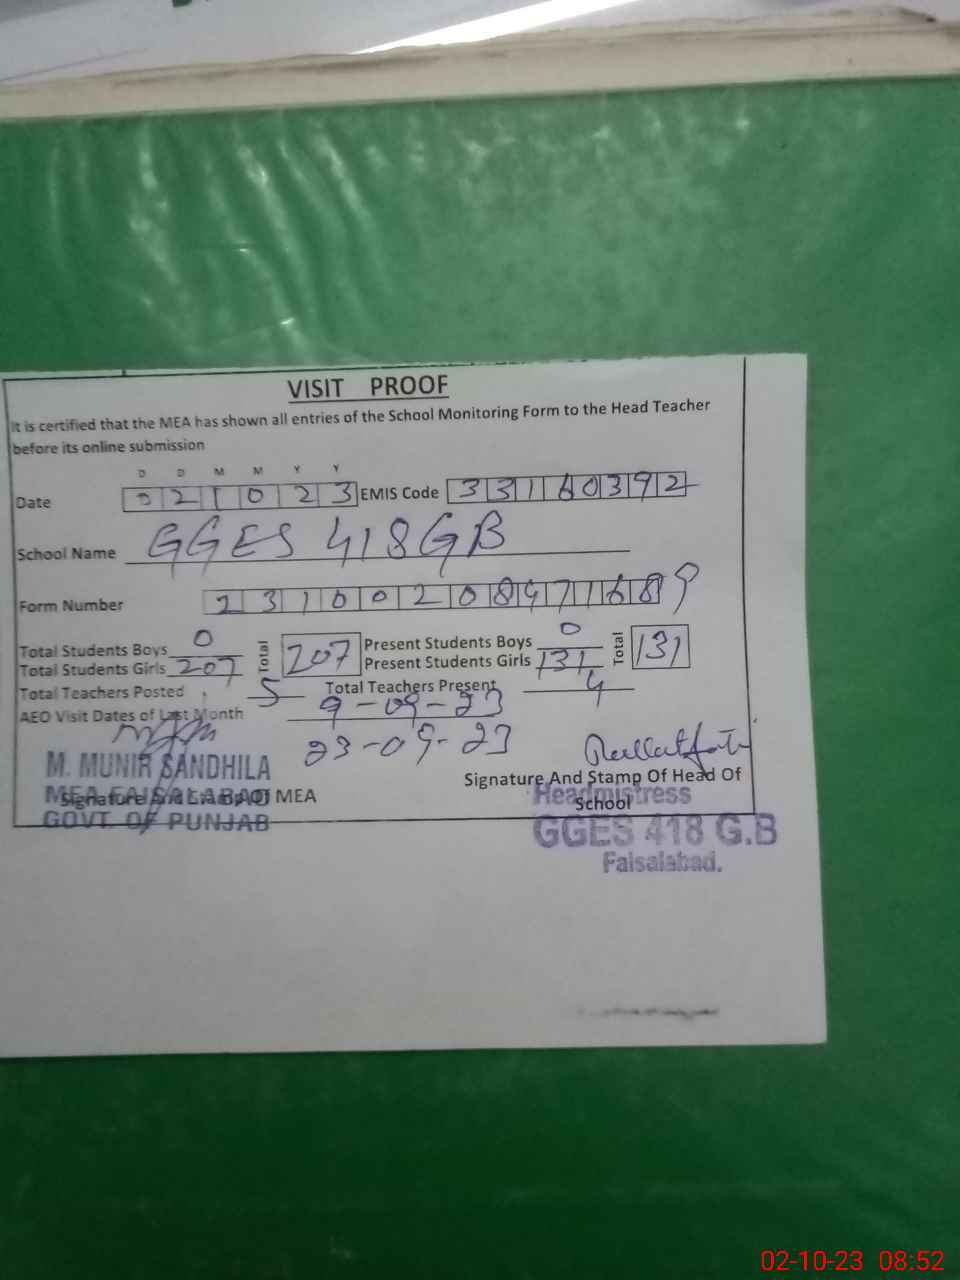 VISIT PROOF
It is certified that the MEA has shown all entries of the School Monitoring Form to the Head Teacher
before its online submission
D D M M Y Y
Date 021023 EMIS Code 33160392
School Name GGES 418GB
Form Number 23100208471689
Total Students Boys 0 Total 207 Present Students Boys 0 Total 131
Total Students Girls 207 Present Students Girls 131
Total Teachers Posted 5 Total Teachers Present 4
AEO Visit Dates of Last Month 9-09-23
23-09-23
M. MUNIR SANDHILA
MEA FAISALABAD
GOVT. OF PUNJAB
Signature And Stamp Of MEA
Signature And Stamp Of Head Of
School
Headmistress
GGES 418 G.B
Faisalabad.
02-10-23 08:52